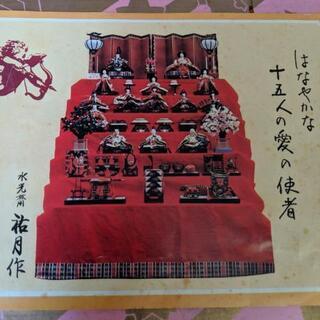 はなやかな
十五人の愛の使者
祐月作